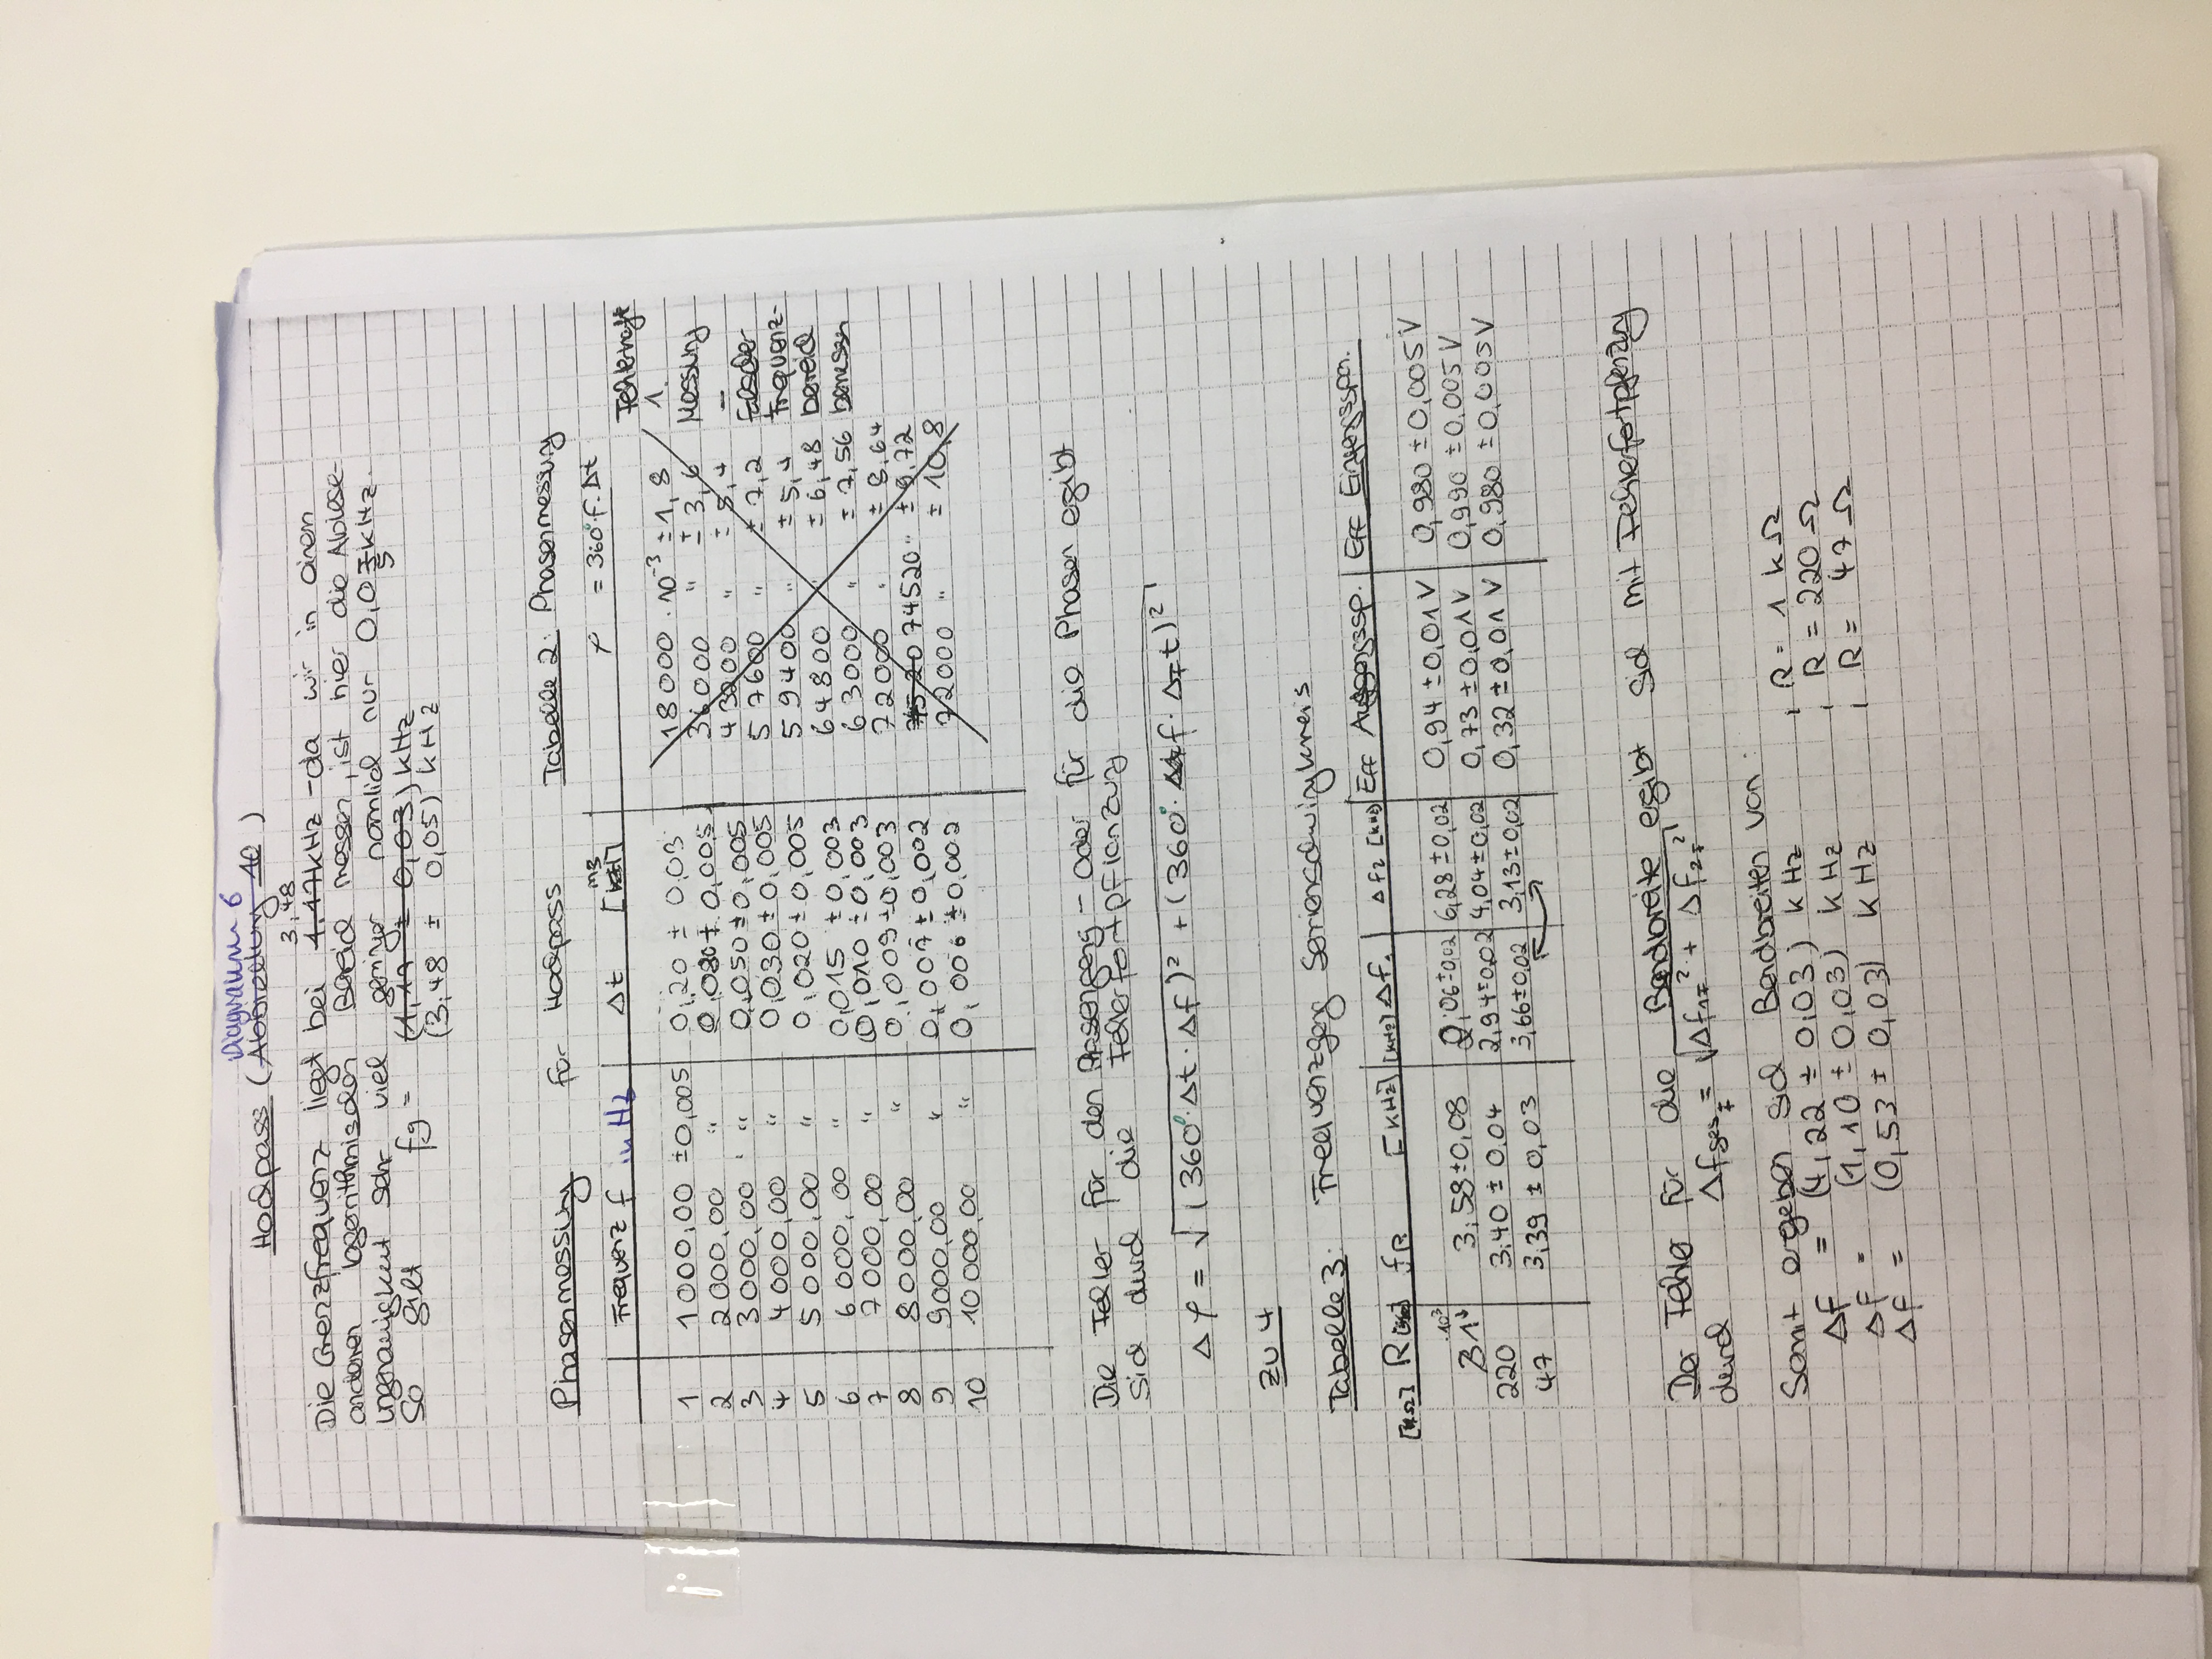 Diagramm 6
Hochpass (Abbildung 10)
3,48
Die Grenzfrequenz liegt bei 1.17kHz - da wir in einem
anderen logarithmischen Bereich messen, ist hier die Ablese-
ungenauigkeit sehr viel geringer nämlich nur 0,03kHz.
5
So gilt fg = (1,17 ± 0,03) kHz
(3,48 ± 0,05) kHz
Phasenmessung für Hochpass Tabelle 2: Phasenmessung
Frequenz f in Hz Δt [ms] φ = 360°·f·Δt
Fehlerhaft
1 1000,00 ±0,005 0,20 ± 0,03 18000 ·10⁻³ ±1,8 1.
2 2000,00 " 0,080± 0,005 36000 " ± 3,6 Messung
3 3000,00 " 0,050±0,005 43200 " ± 5,4 –
4 4000,00 " 0,030±0,005 57600 " ± 7,2 Falscher
5 5000,00 " 0,020±0,005 59400 " ± 5,4 Frequenz-
6 6000,00 " 0,015 ±0,003 64800 " ± 6,48 bereich
7 7000,00 " 0,010 ±0,003 63000 " ± 7,56 bemessen
8 8000,00 " 0,009±0,003 72000 " ± 8,64
9 9000,00 " 0,007±0,002 74520 " ±9,72
10 10000,00 " 0,006 ±0,002 72000 " ± 10,8
Die Fehler für den Phasengang – oder für die Phasen ergibt
sich durch die Fehlerfortpflanzung
Δφ = √(360°·Δt·Δf)² + (360°·f·Δ_F t)²
Zu 4
Tabelle 3: Frequenzgang Serienschwingkreis
R fR [kHz] [kHz] Δf₁ Δf2 [kHz] Eff Ausgangssp. Eff Eingangsspan.
·10³
1 3,58±0,08 2,06±0,02 6,28±0,02 0,94 ±0,01 V 0,980 ±0,005 V
220 3,40 ± 0,04 2,94±0,02 4,04±0,02 0,73 ±0,01 V 0,990 ±0,005 V
47 3,39 ± 0,03 3,66±0,02 3,13±0,02 0,32 ±0,01 V 0,980 ±0,005V
Der Fehler für die Bandbreite ergibt sich mit Fehlerfortpflanzung
durch Δfges_F = √Δf1_F² + Δf2_F²
Somit ergeben sich Bandbreiten von:
Δf = (4,22 ± 0,03) kHz , R = 1 kΩ
Δf = (1,10 ± 0,03) kHz , R = 220 Ω
Δf = (0,53 ± 0,03) kHz , R = 47 Ω